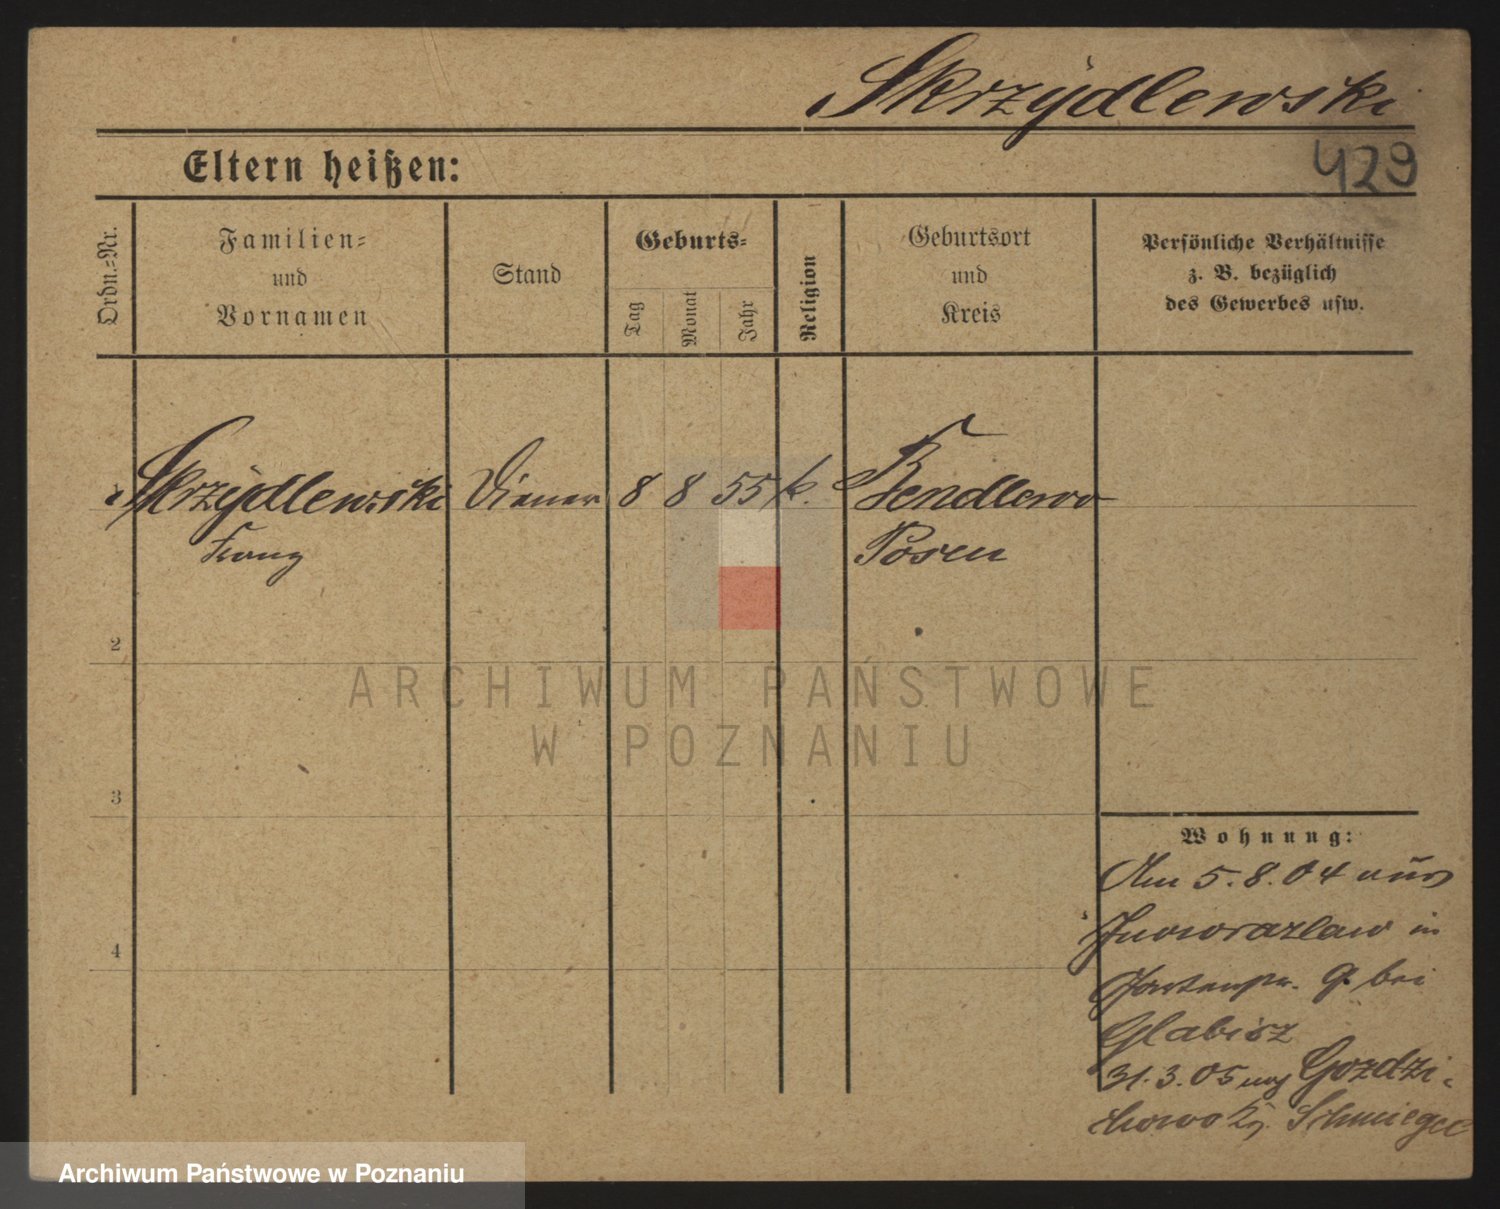 Skrzÿdlewski
Eltern heißen:
429
Ordn.-Nr.
Familien-
und
Vornamen
Stand
Geburts-
Tag
Monat
Jahr
Religion
Geburtsort
und
Kreis
Persönliche Verhältnisse
z. B. bezüglich
des Gewerbes usw.
1 Skrzÿdlewski Diener 8 8 55 k. Bendlewo
Franz Posen
2
3
4
Wohnung:
Am 5.8.04 aus
Inowrazlaw in
Gartenstr. 9 bei
Glabisz
31.3.05 nach Gozdzi-
chowo Kr. Schmiegel
ARCHIWUM PAŃSTWOWE
W POZNANIU
Archiwum Państwowe w Poznaniu